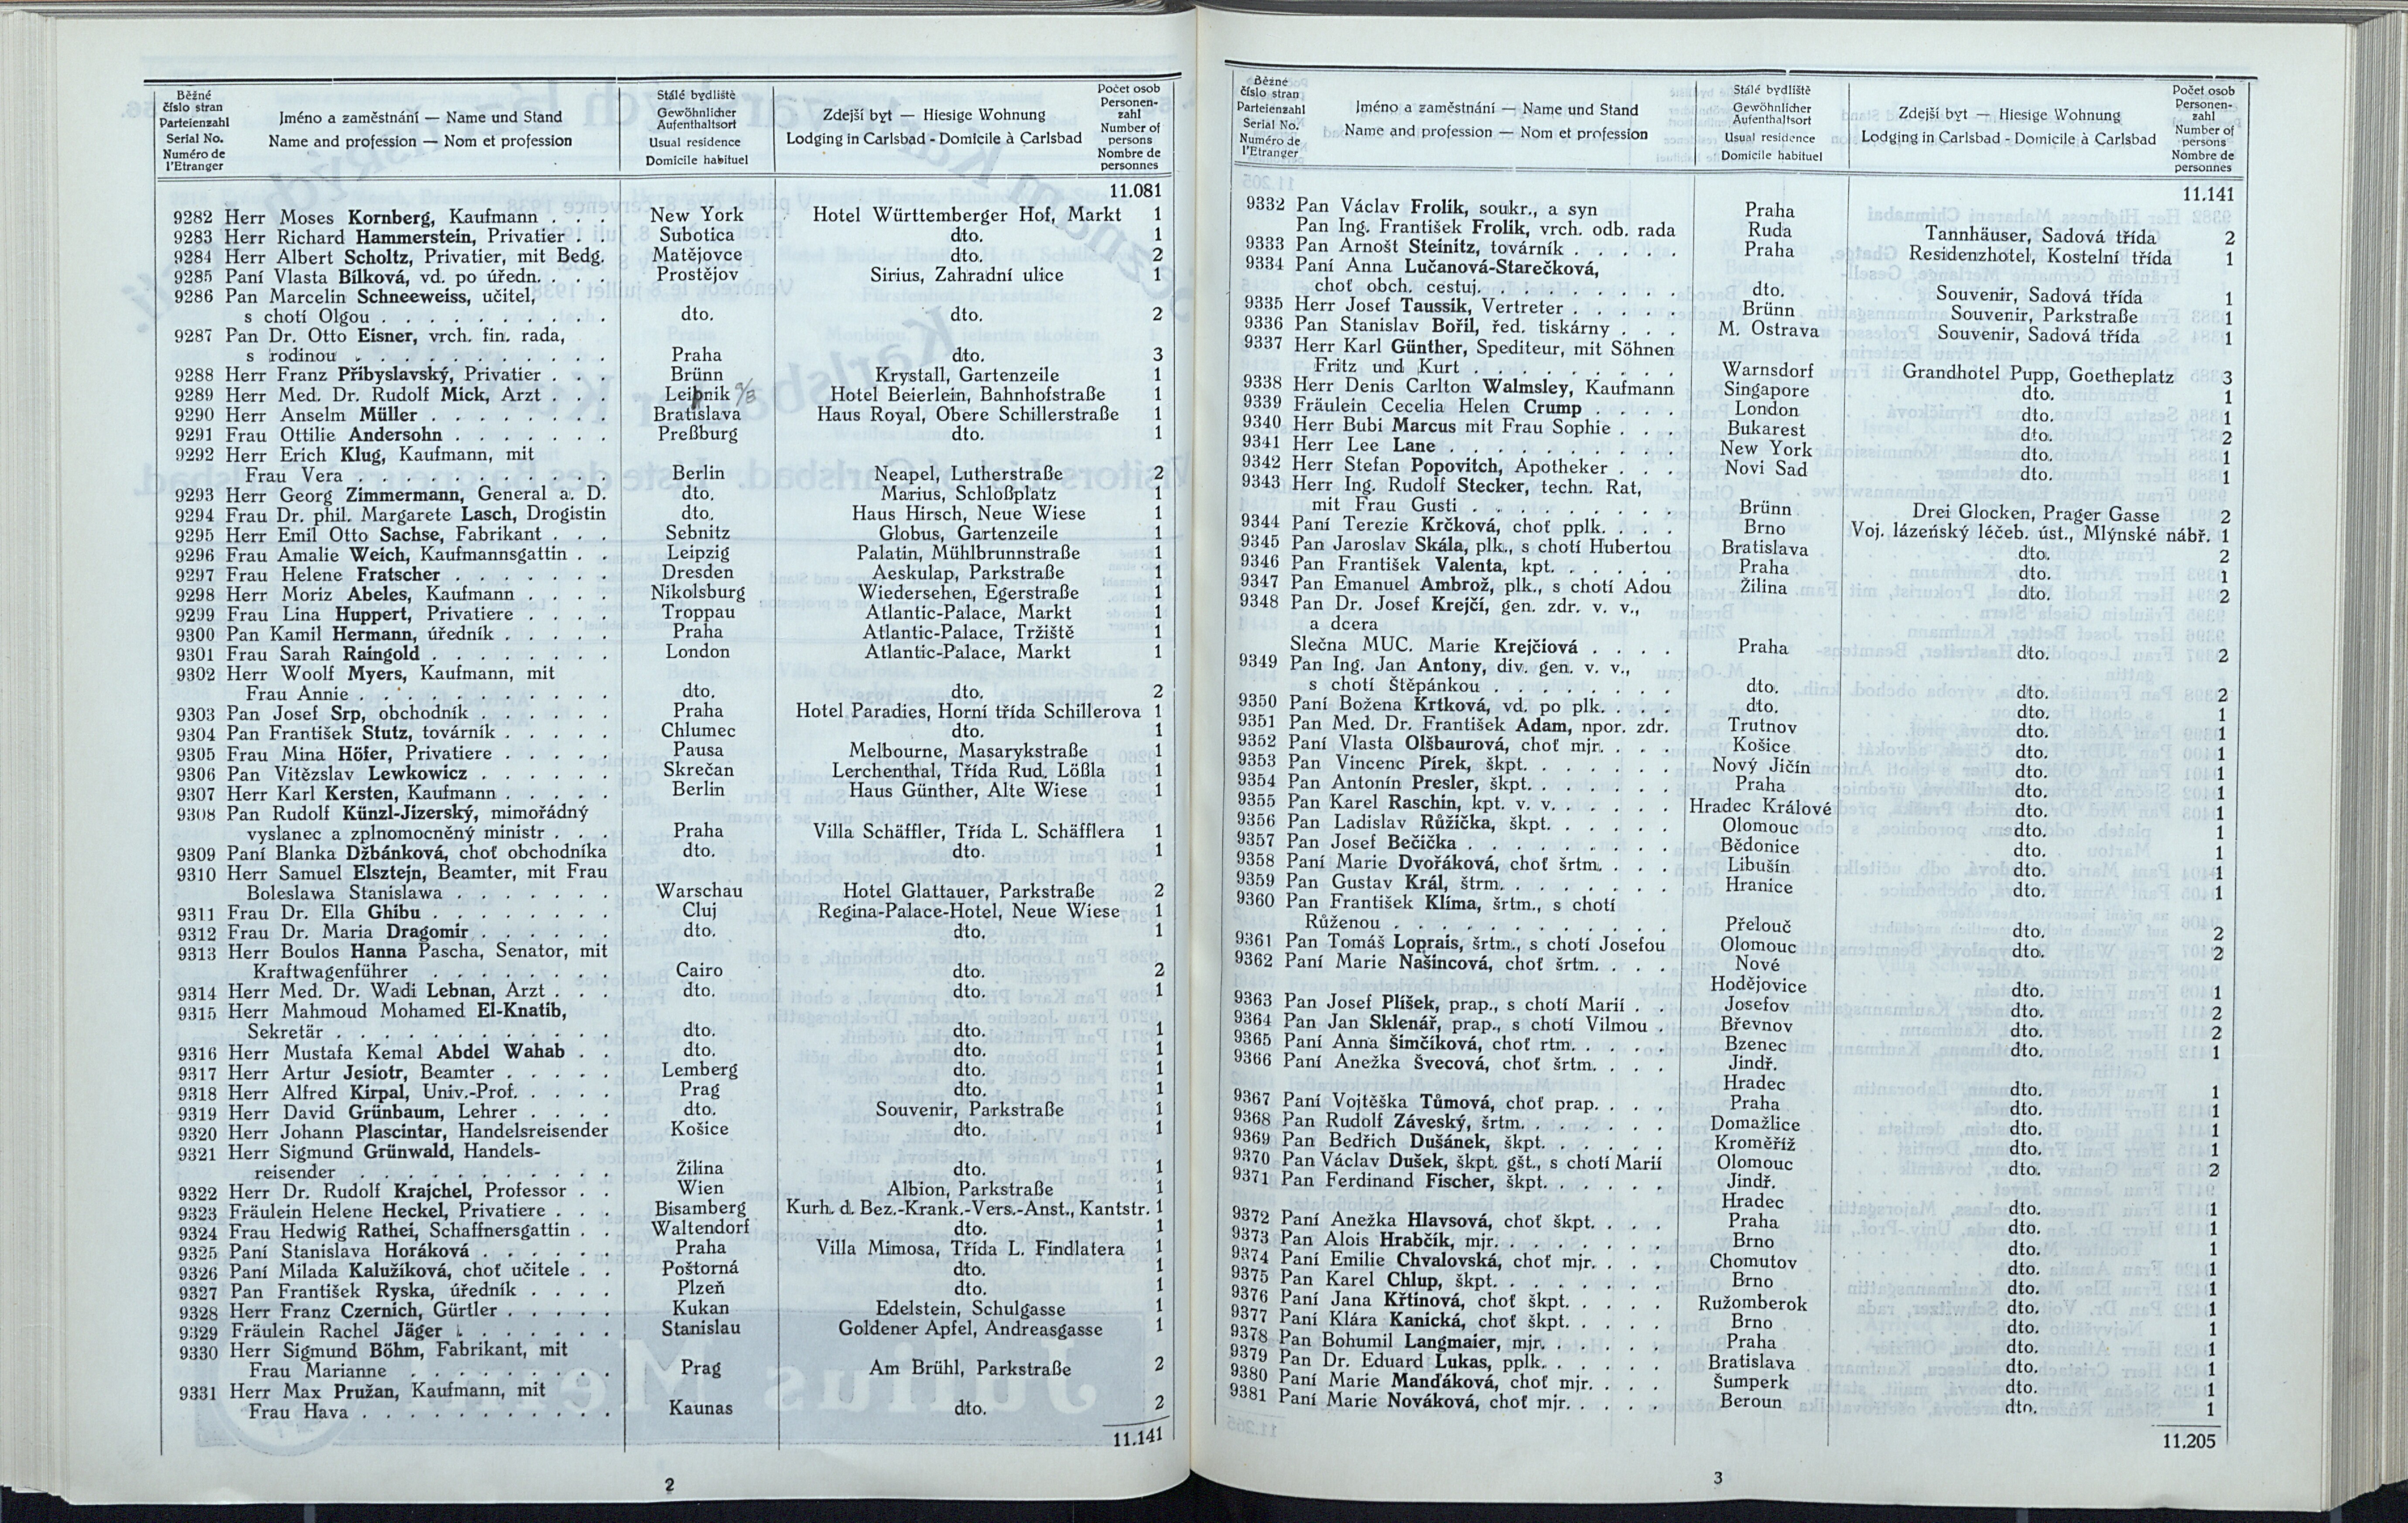 Běžné číslo stran Parteienzahl Serial No. Numéro de l'Etranger
Jméno a zaměstnání — Name und Stand
Name and profession — Nom et profession
Stálé bydliště Gewöhnlicher Aufenthaltsort Usual residence Domicile habituel
Zdejší byt — Hiesige Wohnung
Lodging in Carlsbad - Domicile à Carlsbad
Počet osob Personen-zahl Number of persons Nombre de personnes
11.081
9282 Herr Moses Kornberg, Kaufmann . . New York Hotel Württemberger Hof, Markt 1
9283 Herr Richard Hammerstein, Privatier . . Subotica dto. 1
9284 Herr Albert Scholtz, Privatier, mit Bedg. Matějovce dto. 2
9285 Paní Vlasta Bílková, vd. po úředn. . . Prostějov Sirius, Zahradní ulice 1
9286 Pan Marcelin Schneeweiss, učitel,
s chotí Olgou . . . dto. dto. 2
9287 Pan Dr. Otto Eisner, vrch. fin. rada,
s rodinou . . . Praha dto. 3
9288 Herr Franz Přibyslavský, Privatier . . . Brünn Krystall, Gartenzeile 1
9289 Herr Med. Dr. Rudolf Mick, Arzt . . . Leipnik Hotel Beierlein, Bahnhofstraße 1
9290 Herr Anselm Müller . . . Bratislava Haus Royal, Obere Schillerstraße 1
9291 Frau Ottilie Andersohn . . . Preßburg dto. 1
9292 Herr Erich Klug, Kaufmann, mit
Frau Vera . . . Berlin Neapel, Lutherstraße 2
9293 Herr Georg Zimmermann, General a. D. dto. Marius, Schloßplatz 1
9294 Frau Dr. phil. Margarete Lasch, Drogistin dto. Haus Hirsch, Neue Wiese 1
9295 Herr Emil Otto Sachse, Fabrikant . . . Sebnitz Globus, Gartenzeile 1
9296 Frau Amalie Weich, Kaufmannsgattin . . Leipzig Palatin, Mühlbrunnstraße 1
9297 Frau Helene Fratscher . . . Dresden Aeskulap, Parkstraße 1
9298 Herr Moriz Abeles, Kaufmann . . . Nikolsburg Wiedersehen, Egerstraße 1
9299 Frau Lina Huppert, Privatiere . . . Troppau Atlantic-Palace, Markt 1
9300 Pan Kamil Hermann, úředník . . . Praha Atlantic-Palace, Tržiště 1
9301 Frau Sarah Raingold . . . London Atlantic-Palace, Markt 1
9302 Herr Woolf Myers, Kaufmann, mit
Frau Annie . . . dto. dto. 2
9303 Pan Josef Srp, obchodník . . . Praha Hotel Paradies, Horní třída Schillerova 1
9304 Pan František Stutz, továrník . . . Chlumec dto. 1
9305 Frau Mina Höfer, Privatiere . . . Pausa Melbourne, Masarykstraße 1
9306 Pan Vitězslav Lewkowicz . . . Skrečan Lerchenthal, Třída Rud. Lößla 1
9307 Herr Karl Kersten, Kaufmann . . . Berlin Haus Günther, Alte Wiese 1
9308 Pan Rudolf Künzl-Jizerský, mimořádný
vyslanec a zplnomocněný ministr . . . Praha Villa Schäffler, Třída L. Schäfflera 1
9309 Paní Blanka Džbánková, choť obchodníka dto. dto. 1
9310 Herr Samuel Elsztejn, Beamter, mit Frau
Boleslawa Stanislawa . . . Warschau Hotel Glattauer, Parkstraße 2
9311 Frau Dr. Ella Ghibu . . . Cluj Regina-Palace-Hotel, Neue Wiese 1
9312 Frau Dr. Maria Dragomir . . . dto. dto. 1
9313 Herr Boulos Hanna Pascha, Senator, mit
Kraftwagenführer . . . Cairo dto. 2
9314 Herr Med. Dr. Wadi Lebnan, Arzt . . dto. dto. 1
9315 Herr Mahmoud Mohamed El-Knatib,
Sekretär . . . dto. dto. 1
9316 Herr Mustafa Kemal Abdel Wahab . . dto. dto. 1
9317 Herr Artur Jesiotr, Beamter . . . Lemberg dto. 1
9318 Herr Alfred Kirpal, Univ.-Prof. . . . Prag dto. 1
9319 Herr David Grünbaum, Lehrer . . . dto. Souvenir, Parkstraße 1
9320 Herr Johann Plascintar, Handelsreisender Košice dto. 1
9321 Herr Sigmund Grünwald, Handels-
reisender . . . Žilina dto. 1
9322 Herr Dr. Rudolf Krajchel, Professor . . Wien Albion, Parkstraße 1
9323 Fräulein Helene Heckel, Privatiere . . . Bisamberg Kurh. d. Bez.-Krank.-Vers.-Anst., Kantstr. 1
9324 Frau Hedwig Rathei, Schaffnersgattin . . Waltendorf dto. 1
9325 Paní Stanislava Horáková . . . Praha Villa Mimosa, Třída L. Findlatera 1
9326 Paní Milada Kalužíková, choť učitele . . Poštorná dto. 1
9327 Pan František Ryska, úředník . . . Plzeň dto. 1
9328 Herr Franz Czernich, Gürtler . . . Kukan Edelstein, Schulgasse 1
9329 Fräulein Rachel Jäger . . . Stanislau Goldener Apfel, Andreasgasse 1
9330 Herr Sigmund Böhm, Fabrikant, mit
Frau Marianne . . . Prag Am Brühl, Parkstraße 2
9331 Herr Max Pružan, Kaufmann, mit
Frau Hava . . . Kaunas dto. 2
11.141
2
Běžné číslo stran Parteienzahl Serial No. Numéro de l'Etranger
Jméno a zaměstnání — Name und Stand
Name and profession — Nom et profession
Stálé bydliště Gewöhnlicher Aufenthaltsort Usual residence Domicile habituel
Zdejší byt — Hiesige Wohnung
Lodging in Carlsbad - Domicile à Carlsbad
Počet osob Personen-zahl Number of persons Nombre de personnes
11.141
9332 Pan Václav Frolik, soukr., a syn Praha
Pan Ing. František Frolik, vrch. odb. rada Ruda Tannhäuser, Sadová třída 2
9333 Pan Arnošt Steinitz, továrník . . . Praha Residenzhotel, Kostelní třída 1
9334 Paní Anna Lučanová-Starečková,
choť obch. cestuj. . . . dto. Souvenir, Sadová třída 1
9335 Herr Josef Taussik, Vertreter . . . Brünn Souvenir, Parkstraße 1
9336 Pan Stanislav Bořil, řed. tiskárny . . . M. Ostrava Souvenir, Sadová třída 1
9337 Herr Karl Günther, Spediteur, mit Söhnen
Fritz und Kurt . . . Warnsdorf Grandhotel Pupp, Goetheplatz 3
9338 Herr Denis Carlton Walmsley, Kaufmann Singapore dto. 1
9339 Fräulein Cecelia Helen Crump . . . London dto. 1
9340 Herr Bubi Marcus mit Frau Sophie . . . Bukarest dto. 2
9341 Herr Lee Lane . . . New York dto. 1
9342 Herr Stefan Popovitch, Apotheker . . . Novi Sad dto. 1
9343 Herr Ing. Rudolf Stecker, techn. Rat,
mit Frau Gusti . . . Brünn Drei Glocken, Prager Gasse 2
9344 Paní Terezie Krčková, choť pplk. . . . Brno Voj. lázeňský léčeb. úst., Mlýnské nábř. 1
9345 Pan Jaroslav Skála, plk., s chotí Hubertou Bratislava dto. 2
9346 Pan František Valenta, kpt. . . . Praha dto. 1
9347 Pan Emanuel Ambrož, plk., s chotí Adou Žilina dto. 2
9348 Pan Dr. Josef Krejčí, gen. zdr. v. v.,
a dcera
Slečna MUC. Marie Krejčiová . . . Praha dto. 2
9349 Pan Ing. Jan Antony, div. gen. v. v.,
s chotí Štěpánkou . . . dto. dto. 2
9350 Paní Božena Krtková, vd. po plk. . . . dto. dto. 1
9351 Pan Med. Dr. František Adam, npor. zdr. Trutnov dto. 1
9352 Paní Vlasta Olšbaurová, choť mjr. . . . Košice dto. 1
9353 Pan Vincenc Pírek, škpt. . . . Nový Jičín dto. 1
9354 Pan Antonín Presler, škpt. . . . Praha dto. 1
9355 Pan Karel Raschin, kpt. v. v. . . . Hradec Králové dto. 1
9356 Pan Ladislav Růžička, škpt. . . . Olomouc dto. 1
9357 Pan Josef Bečička . . . Bědonice dto. 1
9358 Paní Marie Dvořáková, choť šrtm. . . . Libušín dto. 1
9359 Pan Gustav Král, štrm. . . . Hranice dto. 1
9360 Pan František Klíma, šrtm., s chotí
Růženou . . . Přelouč dto. 2
9361 Pan Tomáš Loprais, šrtm., s chotí Josefou Olomouc dto. 2
9362 Paní Marie Našincová, choť šrtm. . . . Nové
Hodějovice dto. 1
9363 Pan Josef Plíšek, prap., s chotí Marií . . Josefov dto. 2
9364 Pan Jan Sklenář, prap., s chotí Vilmou . Břevnov dto. 2
9365 Paní Anna Šimčíková, choť rtm. . . . Bzenec dto. 1
9366 Paní Anežka Švecová, choť šrtm. . . . Jindř.
Hradec dto. 1
9367 Paní Vojtěška Tůmová, choť prap. . . . Praha dto. 1
9368 Pan Rudolf Záveský, šrtm. . . . Domažlice dto. 1
9369 Pan Bedřich Dušánek, škpt. . . . Kroměříž dto. 1
9370 Pan Václav Dušek, škpt. gšt., s chotí Marií Olomouc dto. 2
9371 Pan Ferdinand Fischer, škpt. . . . Jindř.
Hradec dto. 1
9372 Paní Anežka Hlavsová, choť škpt. . . . Praha dto. 1
9373 Pan Alois Hrabčík, mjr. . . . Brno dto. 1
9374 Paní Emilie Chvalovská, choť mjr. . . . Chomutov dto. 1
9375 Pan Karel Chlup, škpt. . . . Brno dto. 1
9376 Paní Jana Křtinová, choť škpt. . . . Ružomberok dto. 1
9377 Paní Klára Kanická, choť škpt. . . . Brno dto. 1
9378 Pan Bohumil Langmaier, mjr. . . . Praha dto. 1
9379 Pan Dr. Eduard Lukas, pplk. . . . Bratislava dto. 1
9380 Paní Marie Manďáková, choť mjr. . . . Šumperk dto. 1
9381 Paní Marie Nováková, choť mjr. . . . Beroun dto. 1
11.205
3